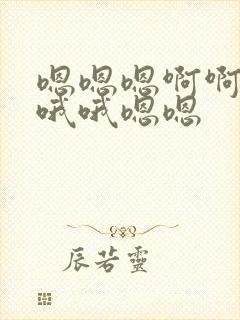 嗯嗯嗯啊啊
哦哦嗯嗯
辰若灵